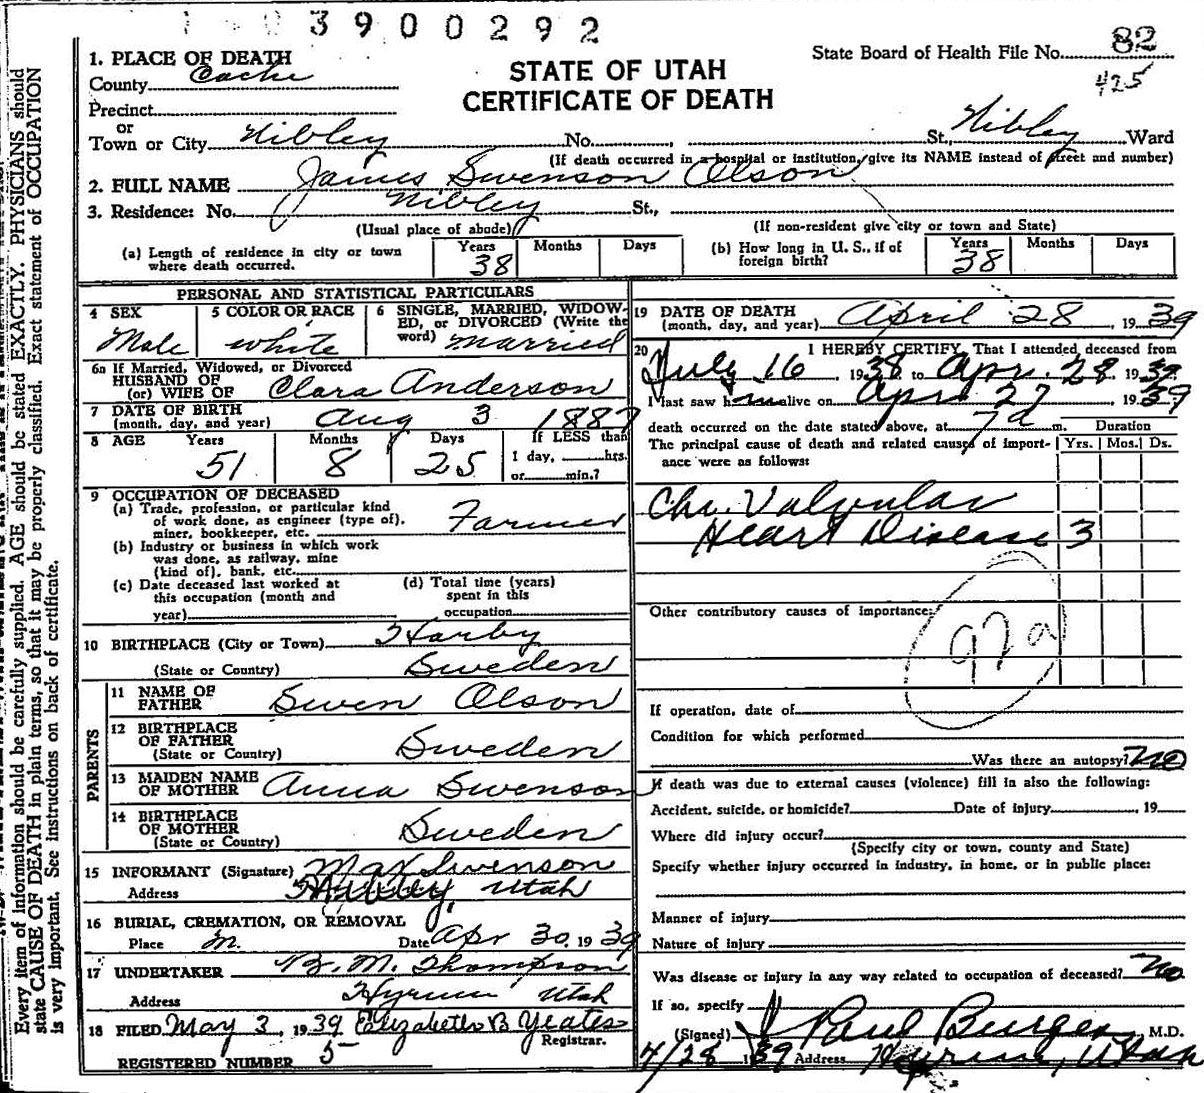 3900292
State Board of Health File No. 82
425
STATE OF UTAH
CERTIFICATE OF DEATH
1. PLACE OF DEATH
County Cache
Precinct
or
Town or City Nibley No. , St., Nibley Ward
(If death occurred in a hospital or institution, give its NAME instead of street and number)
2. FULL NAME James Swenson Olson
3. Residence: No. Nibley St.,
(Usual place of abode) (If non-resident give city or town and State)
(a) Length of residence in city or town where death occurred. Years 38 Months Days
(b) How long in U. S., if of foreign birth? Years 38 Months Days
PERSONAL AND STATISTICAL PARTICULARS
4 SEX Male
5 COLOR OR RACE white
6 SINGLE, MARRIED, WIDOWED, or DIVORCED (Write the word) married
6a If Married, Widowed, or Divorced
HUSBAND OF
(or) WIFE OF Clara Anderson
7 DATE OF BIRTH
(month, day, and year) Aug 3 1887
8 AGE Years 51 Months 8 Days 25 If LESS than
1 day, hrs.
or min.?
9 OCCUPATION OF DECEASED
(a) Trade, profession, or particular kind
of work done, as engineer (type of),
miner, bookkeeper, etc. Farmer
(b) Industry or business in which work
was done, as railway, mine
(kind of), bank, etc.
(c) Date deceased last worked at
this occupation (month and
year)
(d) Total time (years)
spent in this
occupation
10 BIRTHPLACE (City or Town)
(State or Country) Sweden
PARENTS
11 NAME OF
FATHER Swen Olson
12 BIRTHPLACE
OF FATHER
(State or Country) Sweden
13 MAIDEN NAME
OF MOTHER Anna Swenson
14 BIRTHPLACE
OF MOTHER
(State or Country) Sweden
15 INFORMANT (Signature) Max Swenson
Address Utah
16 BURIAL, CREMATION, OR REMOVAL
Place Date Apr 30, 1939
17 UNDERTAKER B. M. Thompson
Address Hyrum Utah
18 FILED May 3, 1939 Elizabeth B Yeates
Registrar.
REGISTERED NUMBER 5
19 DATE OF DEATH
(month, day, and year) April 28, 1939
20 I HEREBY CERTIFY, That I attended deceased from
July 16 1938 to Apr. 28 1939
I last saw him alive on Apr 27 1939
death occurred on the date stated above, at 7 a m. Duration
The principal cause of death and related causes of import- Yrs. Mos. Ds.
ance were as follows:
Chr. Valvular
Heart Disease 3
Other contributory causes of importance:
92a
If operation, date of
Condition for which performed
Was there an autopsy? no
If death was due to external causes (violence) fill in also the following:
Accident, suicide, or homicide? Date of injury , 19
Where did injury occur?
(Specify city or town, county and State)
Specify whether injury occurred in industry, in home, or in public place:
Manner of injury
Nature of injury
Was disease or injury in any way related to occupation of deceased? no
If so, specify
(Signed) J Paul Burgess, M.D.
4/28 1939 Address Hyrum, Utah
Every item of information should be carefully supplied. AGE should be stated EXACTLY. PHYSICIANS should
state CAUSE OF DEATH in plain terms, so that it may be properly classified. Exact statement of OCCUPATION
is very important. See instructions on back of certificate.